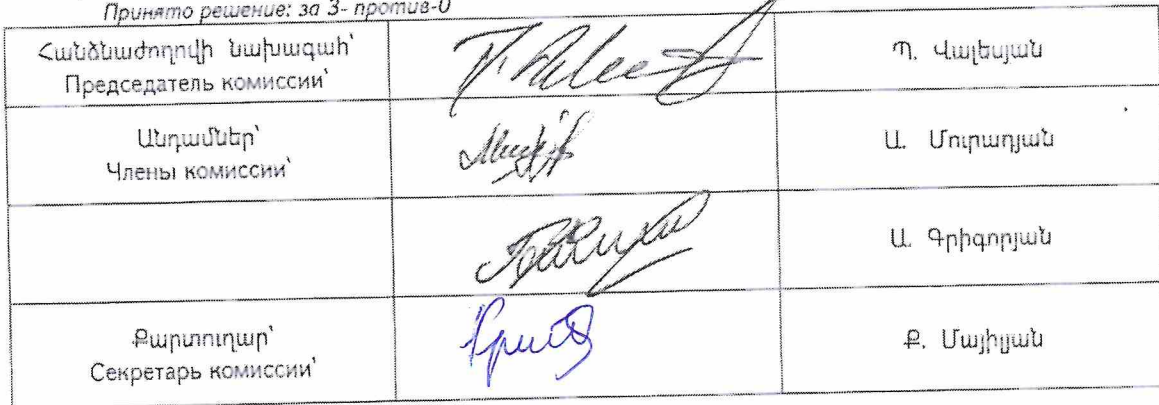 Принято решение: за 3- против-0
Հանձնաժողովի նախագահ՝
Председатель комиссии՝
Պ. Վալեսյան
Անդամներ՝
Члены комиссии՝
Ա. Մուրադյան
Ա. Գրիգորյան
Քարտուղար՝
Секретарь комиссии՝
Ք. Մայիլյան